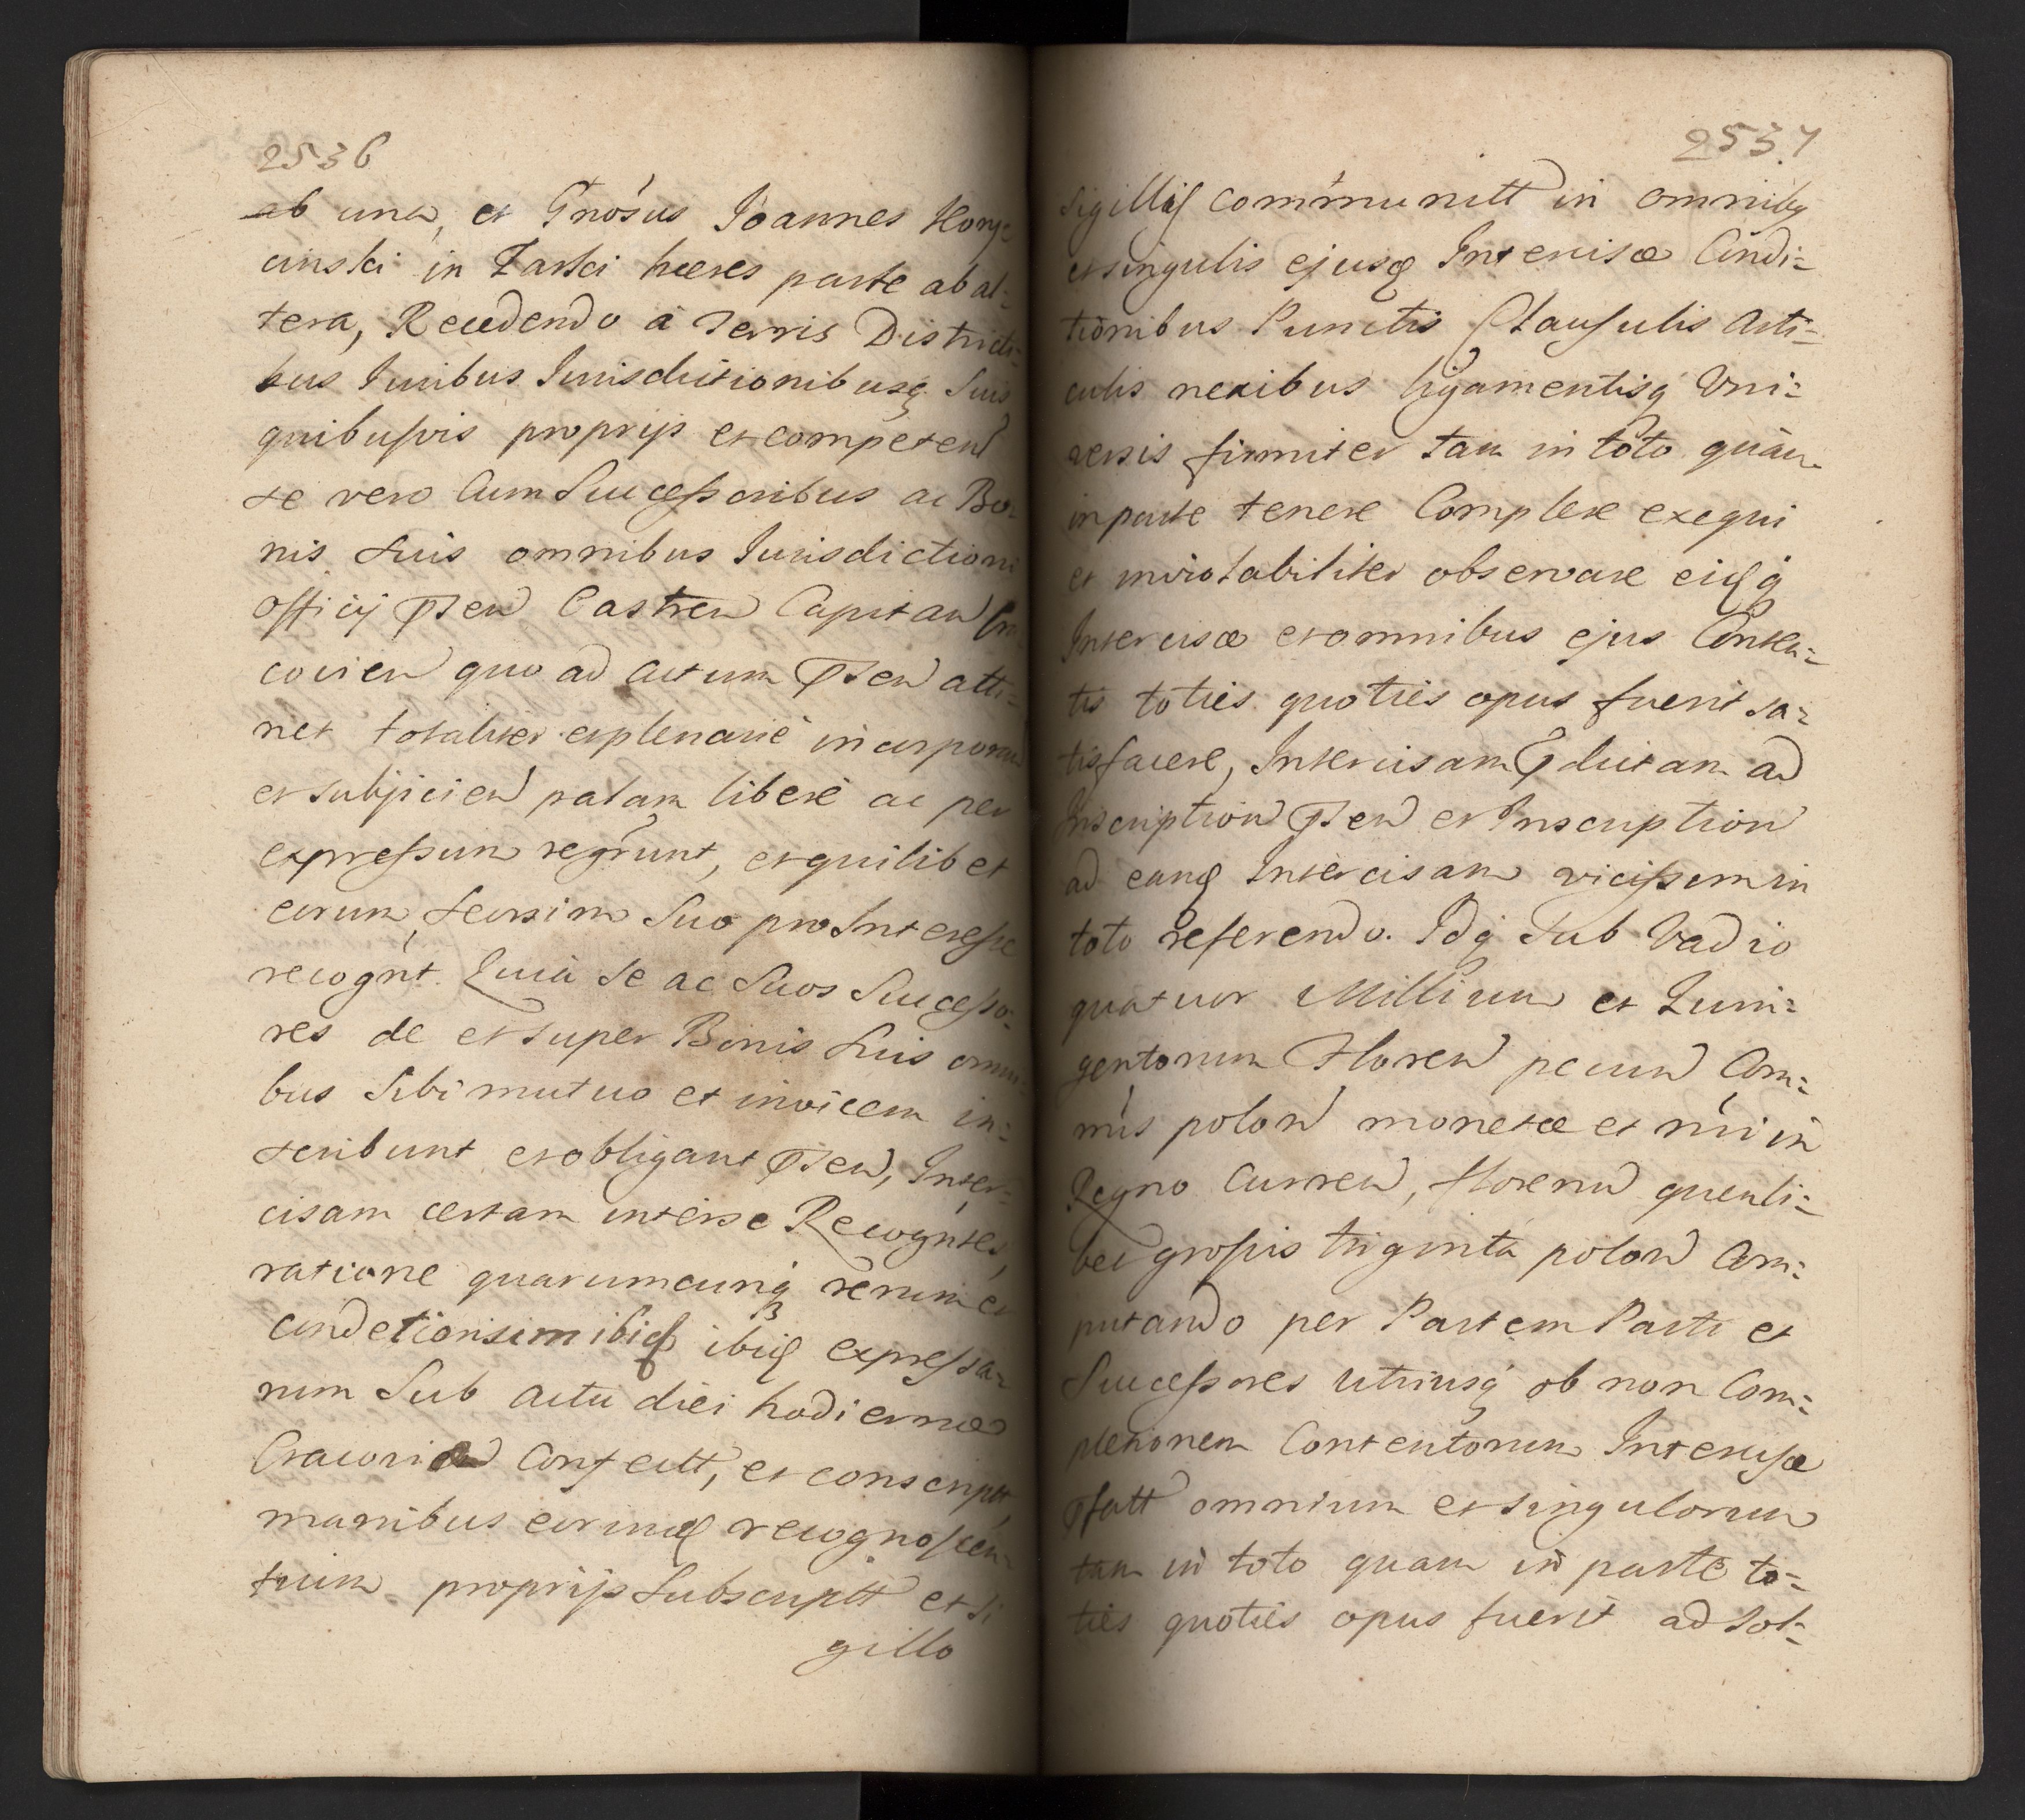 2536
ab una, et Gnosus Joannes Kony
cinski in Zarki hæres parte ab al=
tera, Recedendo à Terris Districti=
bus Iuribus Iurisdictionibusq Suis
quibusvis proprijs et competen
se vero Cum Successoribus ac Bo=
nis Suis omnibus Iurisdictioni
Officij Pſen Castren Capitan Cra
covien quo ad actum Pſen atti=
net totaliter et plenarie incorporan
et subjicien palam libere ac per
expressum regrunt, et quilibet
eorum Seorsim Suo pro Interesse
recognt. Quia Se ac Suos Successo=
res de et super Bonis Suis omni=
bus Sibi mutuo et invicem in=
scribunt et obligant Pſen, Inter=
cisam certam inter se Recogntes,
ratione quarumcunq rerum et
condetionsim ibiq expressa=
rum Sub actu diei hodiernæ
Cracoviæ Confectt, et conscriptt
manibus eorundq recognoscen=
tium proprijs Subscriptt et si
gillo
2537
Sigillis communitt in omnibq
et singulis ejusq Intercisæ Condi=
tionibus Punctis Clausulis Arti=
culis nexibus ligamentisq Uni=
versis firmiter tam in toto quam
in parte tenere Complere exequi
et inviolabiliter observare eidq
Intercisæ et omnibus ejus Conten=
tis toties quoties opus fuerit sa=
tisfacere, Intercisam Pdictam ad
Inscription Pſen et Inscription
ad eandq Intercisam vicissim in
toto referendo. Idq Sub Vadio
quatuor Millium et Quin=
gentorum Floren pecun Com=
mis polon monetæ et nri in
Regno Curren, florenu quemli=
bet grossis triginta polon Com=
putando per Partem Parti et
Successores utriusq ob non Com=
pletionem Contentorum Intercisæ
Pfatt omnium et singulorum
tam in toto quam in parte to=
ties quoties opus fuerit ad sol=